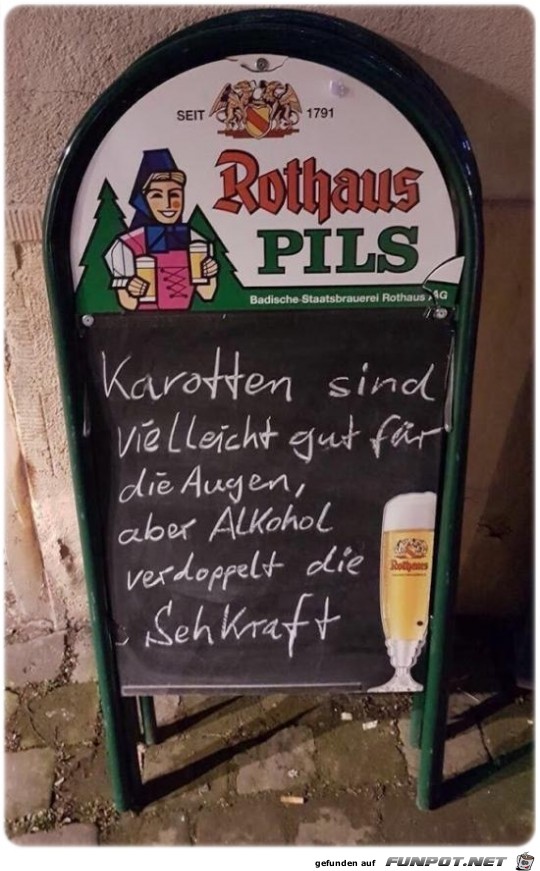 SEIT 1791
Rothaus
PILS
Badische Staatsbrauerei Rothaus AG
Karotten sind
vielleicht gut für
die Augen,
aber Alkohol
verdoppelt die
Sehkraft
Rothaus
gefunden auf FUNPOT.NET